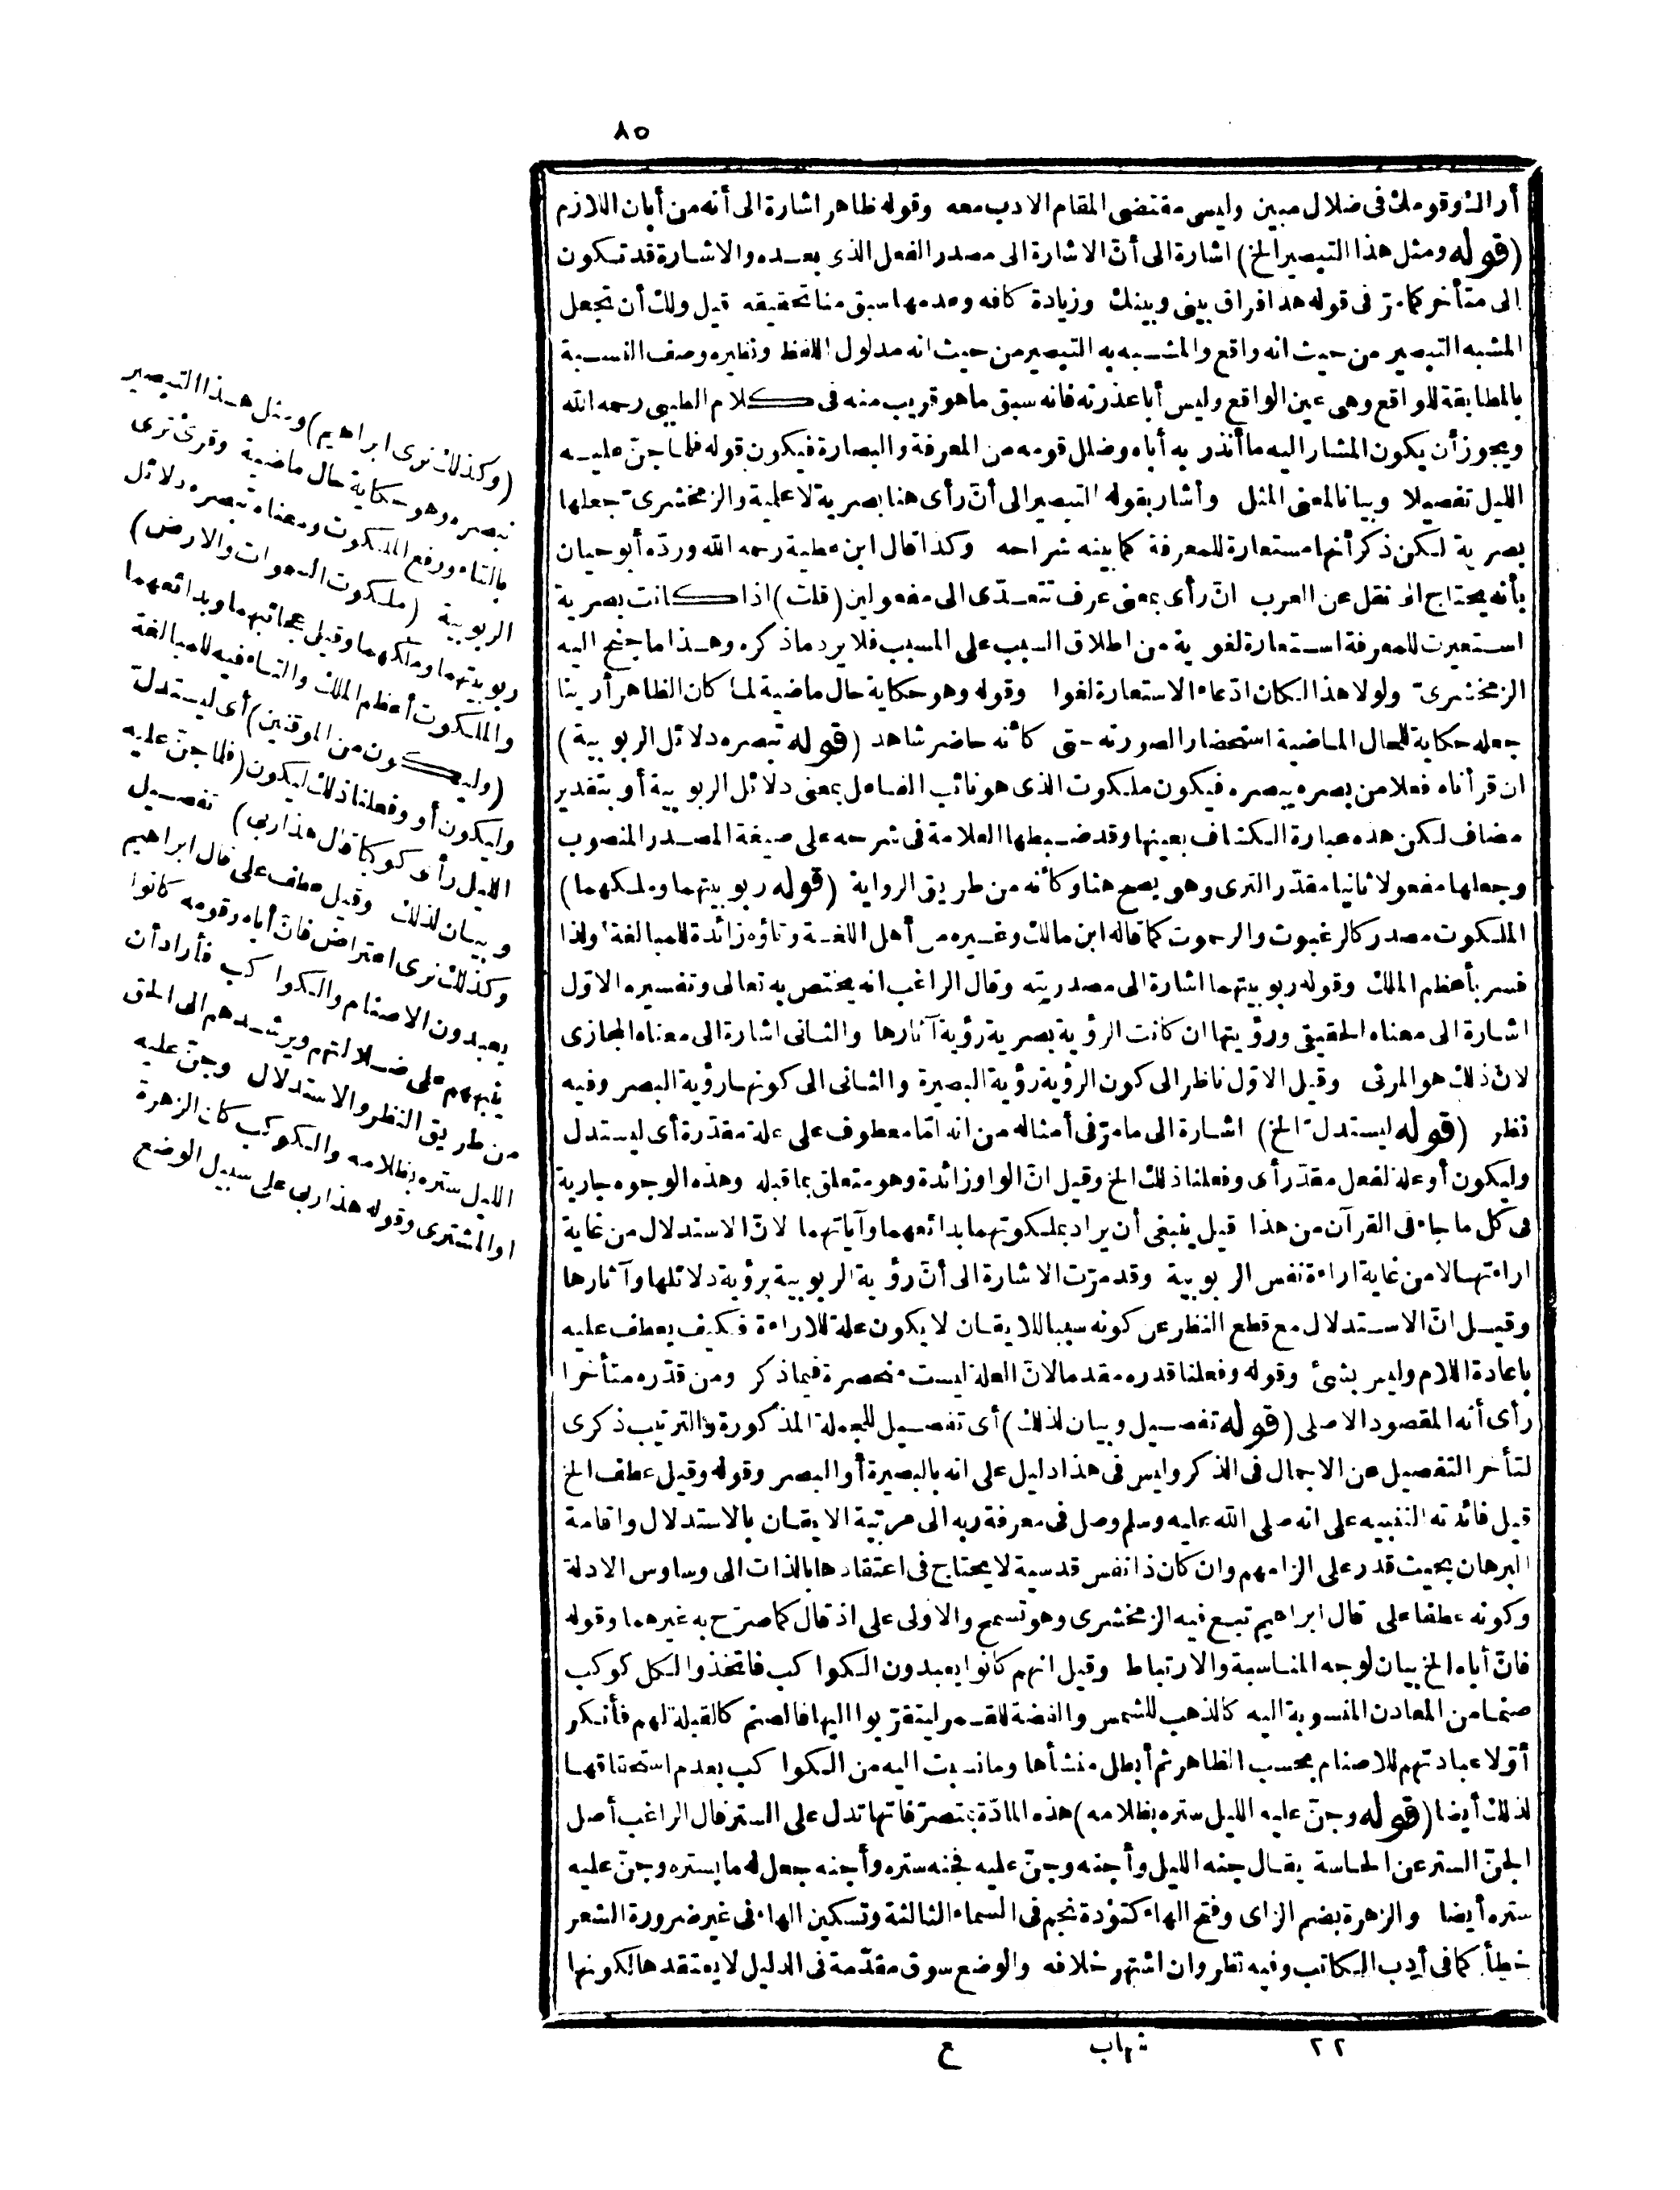 ٨٥
أراك وقومك فى ضلال مبين وليس مقتضى المقام الادب معه وقوله ظاهر اشارة الى أنه من أبان اللازم
(قوله ومثل هذا التبصير الخ) اشارة الى أنّ الاشارة الى مصدر الفعل الذى بعده والاشارة قد تكون
الى متأخر كما مرّ فى قوله هذا فراق بينى وبينك وزيادة كافه وعدمها سبق منا تحقيقه قيل ولك أن تجعل
المشبه التبصير من حيث انه واقع والمشبه به التبصير من حيث انه مدلول اللفظ ونظيره وصف النسبة
بالمطابقة للواقع وهى عين الواقع وليس أبا عذرته فانه سبق ما هو قريب منه فى كلام الطيبى رحمه الله
ويجوز أن يكون المشار اليه ما أنذر به أباه وضلل قومه من المعرفة والبصارة فيكون قوله فلما جنّ عليه
الليل تفصيلا وبيانا لمعنى المثل وأشار بقوله التبصير الى أنّ رأى هنا بصرية لا علمية والزمخشرىّ جعلها
بصرية لكن ذكر أنها مستعارة للمعرفة كما بينه شراحه وكذا قال ابن عطية رحمه الله وردّه أبو حيان
بأنه يحتاج الى نقل عن العرب انّ رأى بمعنى عرف تتعدّى الى مفعولين (قلت) اذا كانت بصرية
استعيرت للمعرفة استعارة لغوية من اطلاق السبب على المسبب فلا يرد ما ذكره وهذا ما جنح اليه
الزمخشرىّ ولولا هذا لكان ادّعاء الاستعارة لغوا وقوله وهو حكاية حال ماضية لما كان الظاهر أرينا
جعله حكاية للحال الماضية استحضارا لصورته حتى كأنه حاضر شاهد (قوله تبصره دلائل الربوبية)
ان قرأناه فعلا من بصره يبصره فيكون ملكوت الذى هو نائب الفاعل بمعنى دلائل الربوبية أو بتقدير
مضاف لكن هذه عبارة الكشاف بعينها وقد ضبطها العلامة فى شرحه على صيغة المصدر المنصوب
وجعلها مفعولا ثانيا مقدّر الترى وهو يصح هنا وكأنه من طريق الرواية (قوله ربوبيتهما وملكهما)
الملكوت مصدر كالرغبوت والرحموت كما قاله ابن مالك وغيره من أهل اللغة وتاؤه زائدة للمبالغة ولذا
فسر بأعظم الملك وقوله ربوبيتهما اشارة الى مصدريته وقال الراغب انه يختص به تعالى وتفسيره الاوّل
اشارة الى معناه الحقيقى ورؤيتها ان كانت الرؤية بصرية رؤية آثارها والثانى اشارة الى معناه المجازى
لانّ ذلك هو المرئى وقيل الاوّل ناظر الى كون الرؤية رؤية البصيرة والثانى الى كونها رؤية البصر وفيه
نظر (قوله ليستدلّ الخ) اشارة الى ما مرّ فى أمثاله من انه امّا معطوف على علة مقدّرة أى ليستدل
وليكون أو علة لفعل مقدّر أى وفعلنا ذلك الخ وقيل انّ الواو زائدة وهو متعلق بما قبله وهذه الوجوه جارية
فى كل ما جاء فى القرآن من هذا قيل ينبغى أن يراد بملكوتهما بدائعهما وآياتهما لانّ الاستدلال من غاية
اراءتها لا من غاية اراءة نفس الربوبية وقد مرّت الاشارة الى أنّ رؤية الربوبية برؤية دلائلها وآثارها
وقيل انّ الاستدلال مع قطع النظر عن كونه سببا للايقان لا يكون علة للاراءة فكيف يعطف عليه
باعادة اللام وليس بشئ وقوله وفعلنا قدره مقدما لانّ العلة ليست منحصرة فيما ذكر ومن قدّره متأخرا
رأى أنه المقصود الاصلى (قوله تفصيل وبيان لذلك) أى تفصيل للجملة المذكورة والترتيب ذكرى
لتأخر التفصيل عن الاجمال فى الذكر وليس فى هذا دليل على انه بالبصيرة أو البصر وقوله وقيل عطف الخ
قيل فائدته التنبيه على انه صلى الله عليه وسلم وصل فى معرفة ربه الى مرتبة الايقان بالاستدلال واقامة
البرهان بحيث قدر على الزامهم وان كان ذا نفس قدسية لا يحتاج فى اعتقادها بالذات الى وساوس الادلة
وكونه عطفا على قال ابراهيم تبع فيه الزمخشرى وهو تسمح والاولى على اذ قال كما صرّح به غيرهما وقوله
فانّ أباه الخ بيان لوجه المناسبة والارتباط وقيل انهم كانوا يعبدون الكواكب فاتخذوا لكل كوكب
صنما من المعادن المنسوبة اليه كالذهب للشمس والفضة للقمر ليتقرّبوا اليها فالصنم كالقبلة لهم فأنكر
أوّلا عبادتهم للاصنام بحسب الظاهر ثم أبطل منشأها وما نسبت اليه من الكواكب بعدم استحقاقها
لذلك أيضا (قوله وجنّ عليه الليل ستره بظلامه) هذه المادّة بتصرّفاتها تدل على الستر قال الراغب أصل
الجنّ الستر عن الحاسة يقال جنه الليل وأجنه وجنّ عليه فجنه ستره وأجنه جعل له ما يستره وجنّ عليه
ستره أيضا والزهرة بضم الزاى وفتح الهاء كتؤدة نجم فى السماء الثالثة وتسكين الهاء فى غير ضرورة الشعر
خطأ كما فى أدب الكاتب وفيه نظر وان اشتهر خلافه والوضع سوق مقدّمة فى الدليل لا يعتقدها لكونها
(وكذلك نرى ابراهيم) ومثل هذا التبصير
نبصره وهو حكاية حال ماضية وقرئ ترى
بالتاء ورفع الملكوت ومعناه تبصره دلائل
الربوبية (ملكوت السموات والارض)
ربوبيتهما وملكهما وقيل عجائبهما وبدائعهما
والملكوت أعظم الملك والتاء فيه للمبالغة
(وليكون من الموقنين) أى ليستدلّ
وليكون أو وفعلنا ذلك ليكون (فلما جنّ عليه
الليل رأى كوكبا قال هذا ربى) تفصيل
وبيان لذلك وقيل عطف على قال ابراهيم
وكذلك نرى اعتراض فانّ أباه وقومه كانوا
يعبدون الاصنام والكواكب فأراد أن
ينبههم على ضلالتهم ويرشدهم الى الحق
من طريق النظر والاستدلال وجنّ عليه
الليل ستره بظلامه والكوكب كان الزهرة
او المشترى وقوله هذا ربى على سبيل الوضع
٢٢ شهاب ع